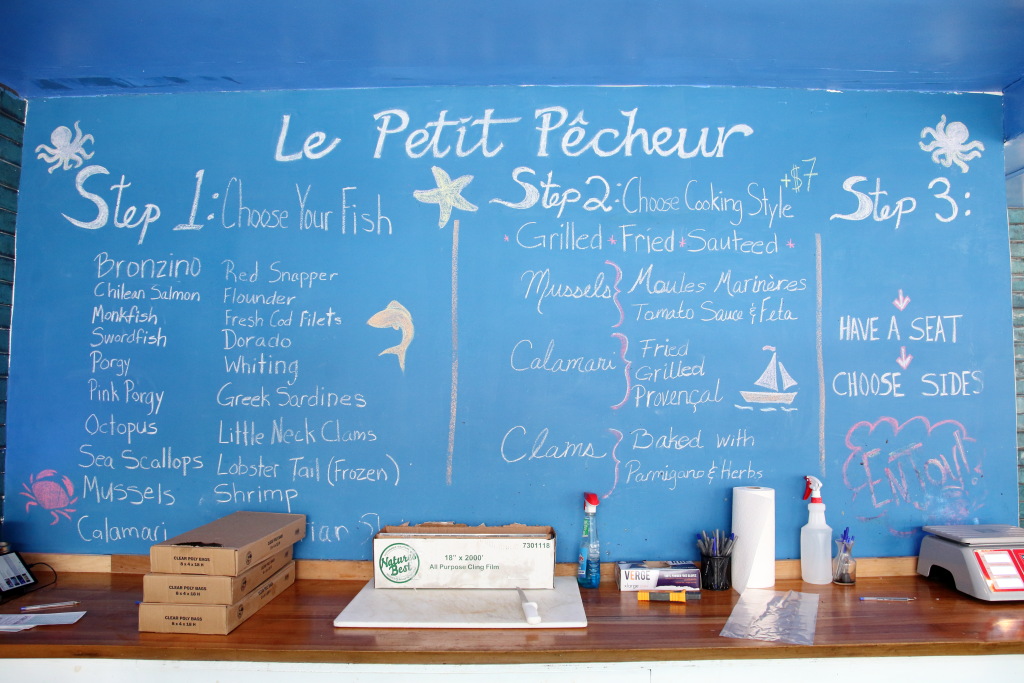 Le Petit Pêcheur
Step 1: Choose Your Fish
Bronzino
Chilean Salmon
Monkfish
Swordfish
Porgy
Pink Porgy
Octopus
Sea Scallops
Mussels
Calamari
Red Snapper
Flounder
Fresh Cod Filets
Dorado
Whiting
Greek Sardines
Little Neck Clams
Lobster Tail (Frozen)
Shrimp
Step 2: Choose Cooking Style +$7
Grilled * Fried * Sauteed *
Mussels
Moules Marinères
Tomato Sauce & Feta
Calamari
Fried
Grilled
Provençal
Clams
Baked with
Parmigano & Herbs
Step 3:
HAVE A SEAT
CHOOSE SIDES
ENJOY!
CLEAR POLY BAGS
8 x 4 x 18 H
CLEAR POLY BAGS
8 x 4 x 18 H
CLEAR POLY BAGS
8 x 4 x 18 H
Nature's Best
7301118
18" x 2000'
All Purpose Cling Film
VERGE